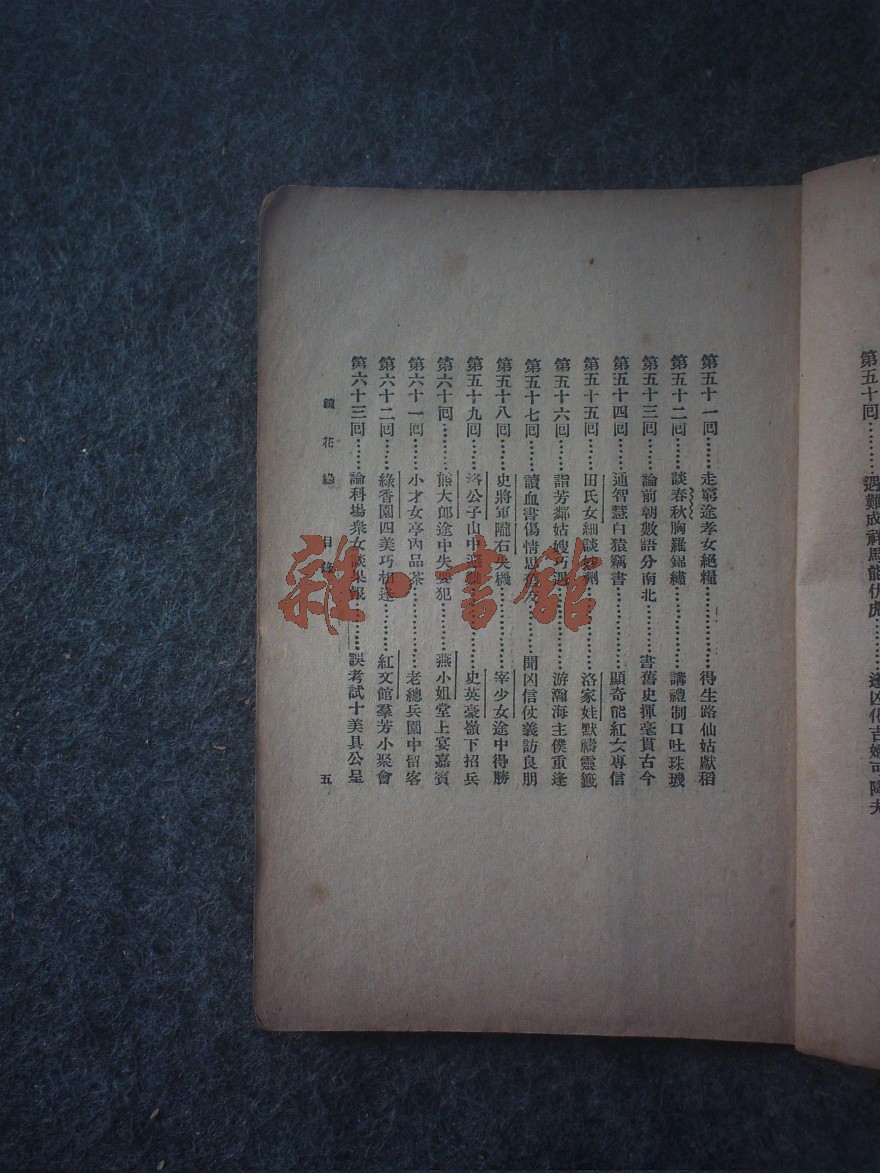 第五十回………遇難成祥馬能伏虎………逢凶化吉婦可降夫
第五十一回……走窮途孝女絕糧………得生路仙姑獻稻
第五十二回……談春秋胸羅錦繡………講禮制口吐珠璣
第五十三回……論前朝數語分南北………書舊史揮毫貫古今
第五十四回……通智慧白猿竊書………顯奇能紅女傳信
第五十五回……田氏女細談妙劑………洛家娃默禱靈籤
第五十六回……詣芳鄰姑嫂巧遇………游瀚海主僕重逢
第五十七回……讀血書傷情思舊友………聞凶信仗義訪良朋
第五十八回……史將軍隴右失機………宰少女途中得勝
第五十九回……洛公子山中避難………史英豪嶺下招兵
第六十回……熊大郎途中失要犯………燕小姐堂上宴嘉賓
第六十一回……小才女亭內品茶………老總兵園中留客
第六十二回……綠香園四美巧相逢………紅文館羣芳小聚會
第六十三回……論科場衆女談果報………誤考試十美具公呈
鏡花緣 目錄 五
雜·書館